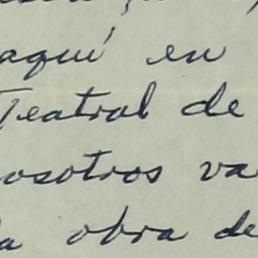 aquí en
Teatral de
osotros va
a obra de